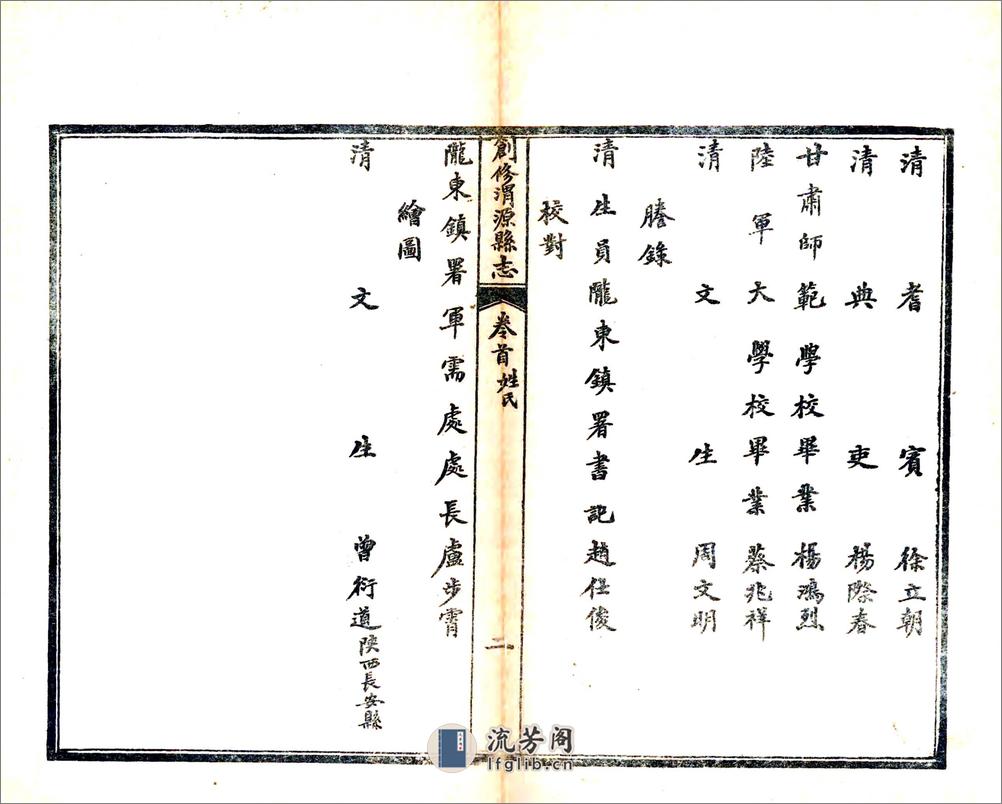 清耆賓徐立朝
清典吏楊際春
甘肅師範學校畢業楊鴻烈
陸軍大學校畢業蔡兆祥
清文生周文明
謄錄
清生員隴東鎮署書記趙任俊
校對
創修渭源縣志
卷首姓氏
二
隴東鎮署軍需處處長盧步霄
繪圖
清文生曾衍道陝西長安縣
流芳阁
lfglib.cn